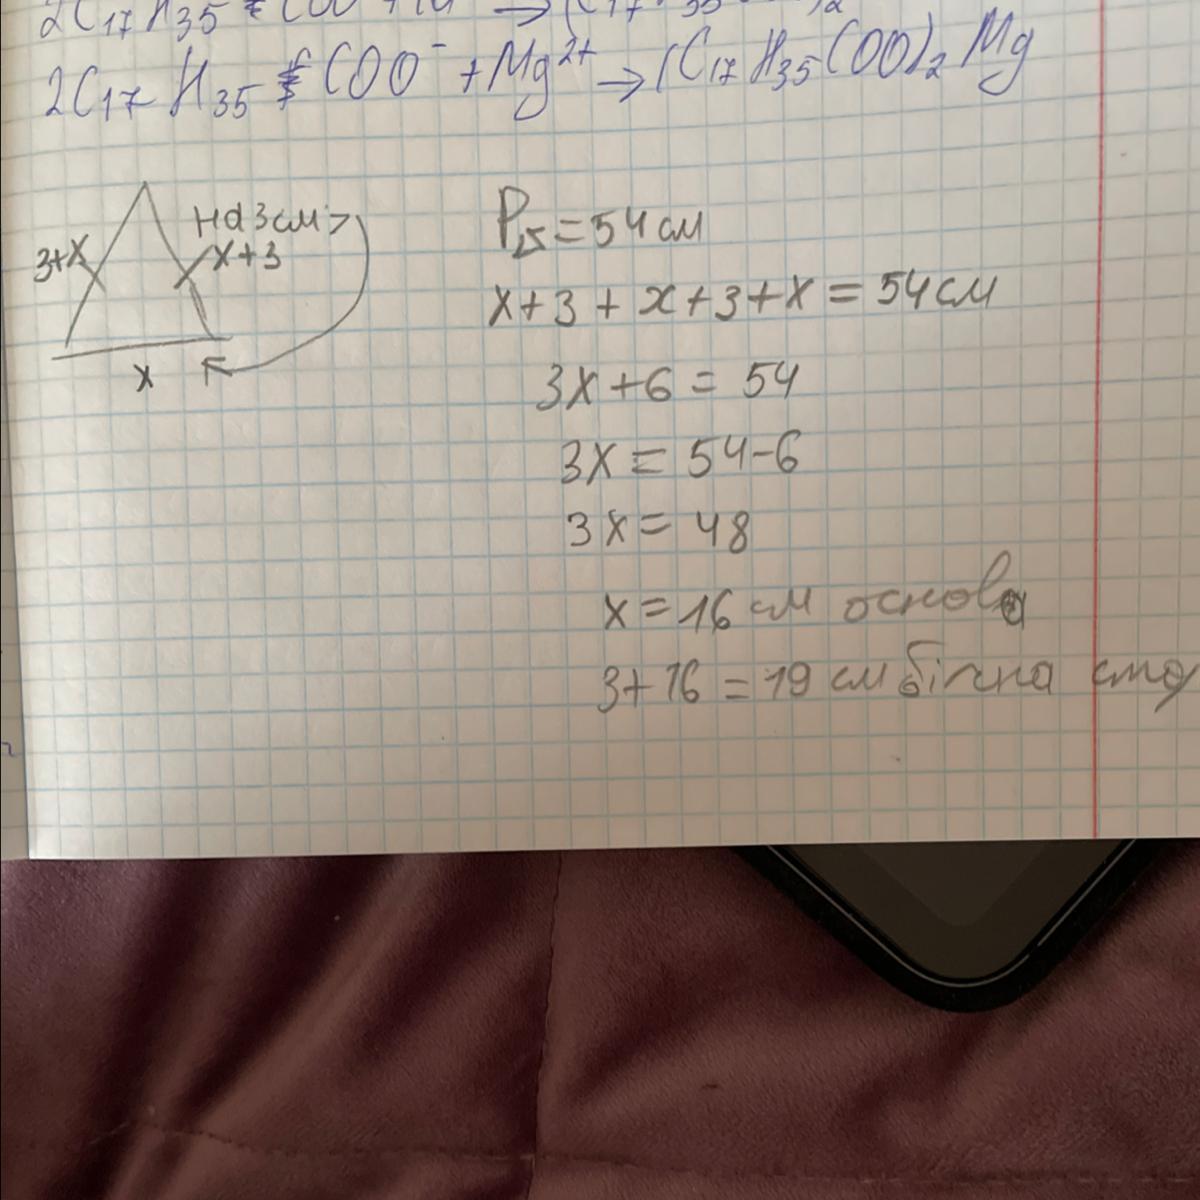 2C₁₇H₃₅COO⁻ + Mg²⁺ → (C₁₇H₃₅COO)₂Mg
3+x
на 3 см >
x+3
x
P = 54 см
x+3 + x+3+x = 54 см
3x+6 = 54
3x = 54-6
3x = 48
x = 16 см основа
3+16 = 19 см бічна